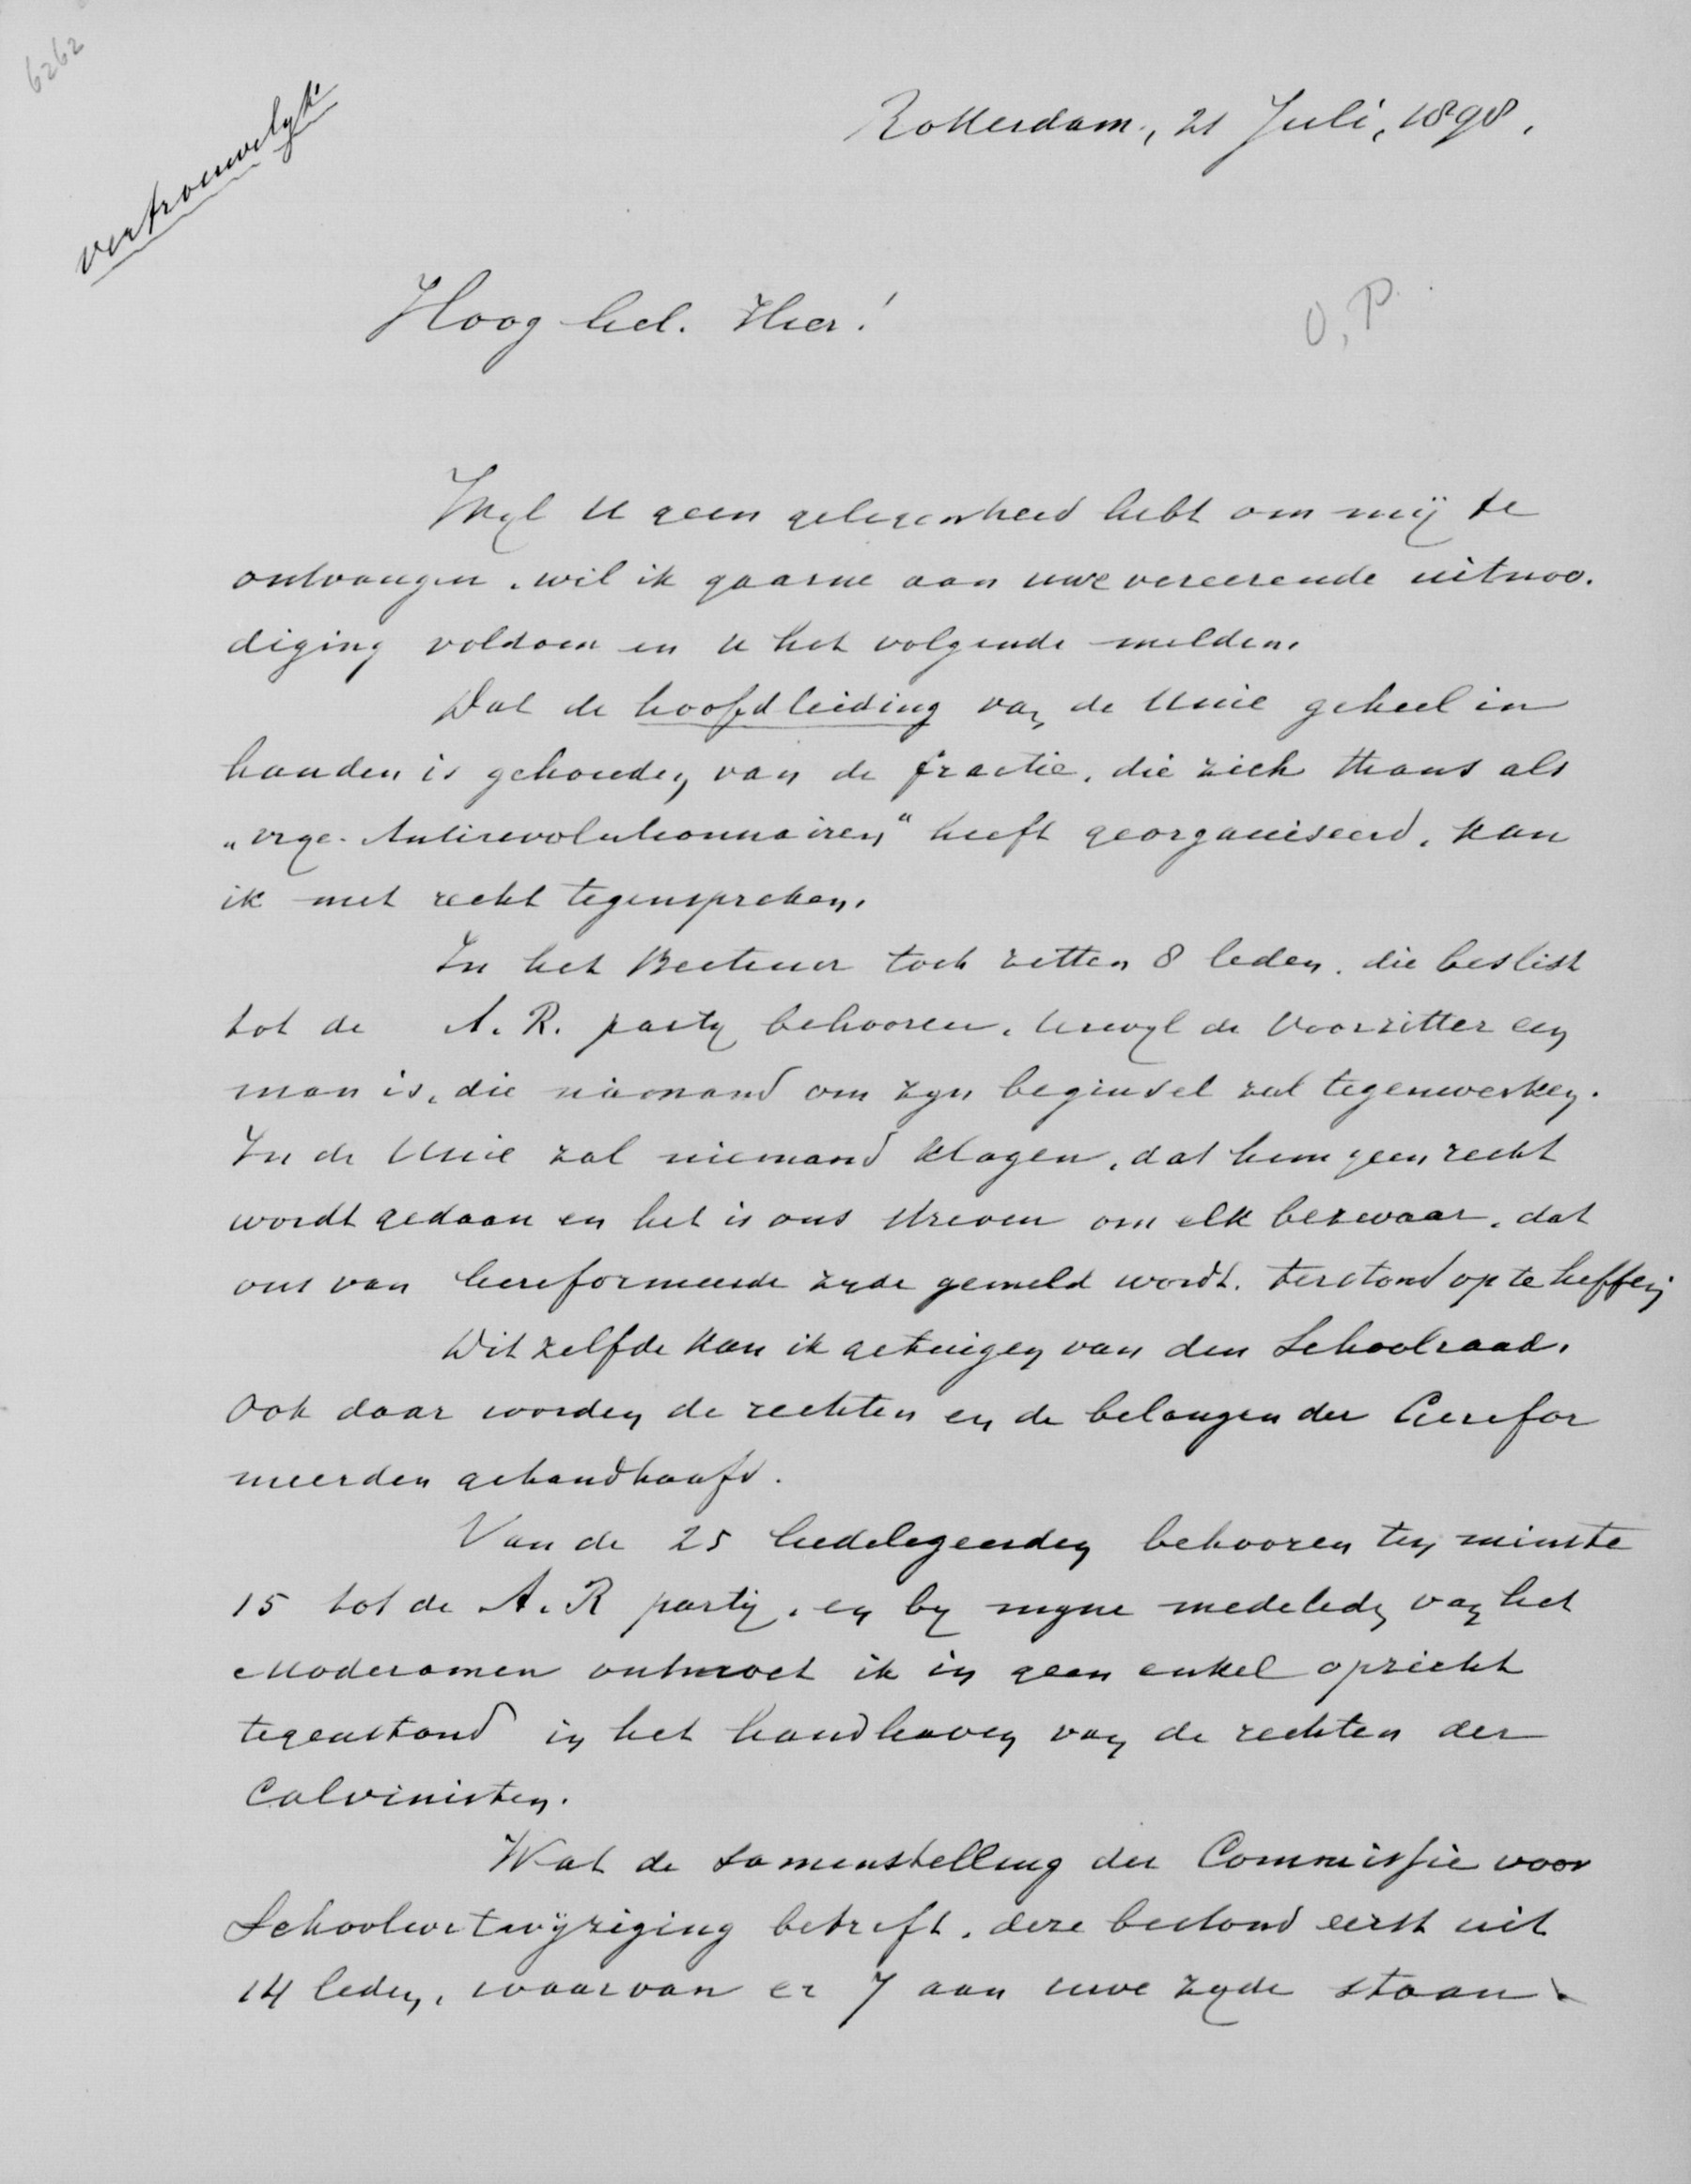 6262
vertrouwelyk
Rotterdam, 21 Juli, 1898.
Hoog Ed. Heer!
O, P.
Wyl U geen gelegenheid hebt om mij te
ontvangen, wil ik gaarne aan uwe vereerende uitnoo-
diging voldoen en U het volgende melden.
Dat de hoofdleiding van de Unie geheel in
handen is gehouden van de fractie, die zich thans als
„vrye Antirevolutionnairen" heeft georganiseerd, kan
ik met recht tegenspreken.
In het Bestuur toch zitten 8 leden, die beslist
tot de A. R. party behooren, terwyl de Voorzitter een
man is, die niemand om zyn beginsel zal tegenwerken.
In de Unie zal niemand klagen, dat hem geen recht
wordt gedaan en het is ons streven om elk bezwaar, dat
ons van Gereformeerde zyde gemeld wordt, terstond op te heffen
Dit zelfde kan ik getuigen van den Schoolraad.
Ook daar worden de rechten en de belangen der Gerefor
meerden gehandhaafd.
Van de 25 Gedelegeerden behooren ten minste
15 tot de A. R party, en by myne medeleden van het
Moderamen ontmoet ik in geen enkel opzicht
tegenstand in het handhaven van de rechten der
Calvinisten.
Wat de samenstelling der Commissie voor
Schoolwetwijziging betreft, deze bestond eerst uit
14 leden, waarvan er 7 aan uwe zyde staan.